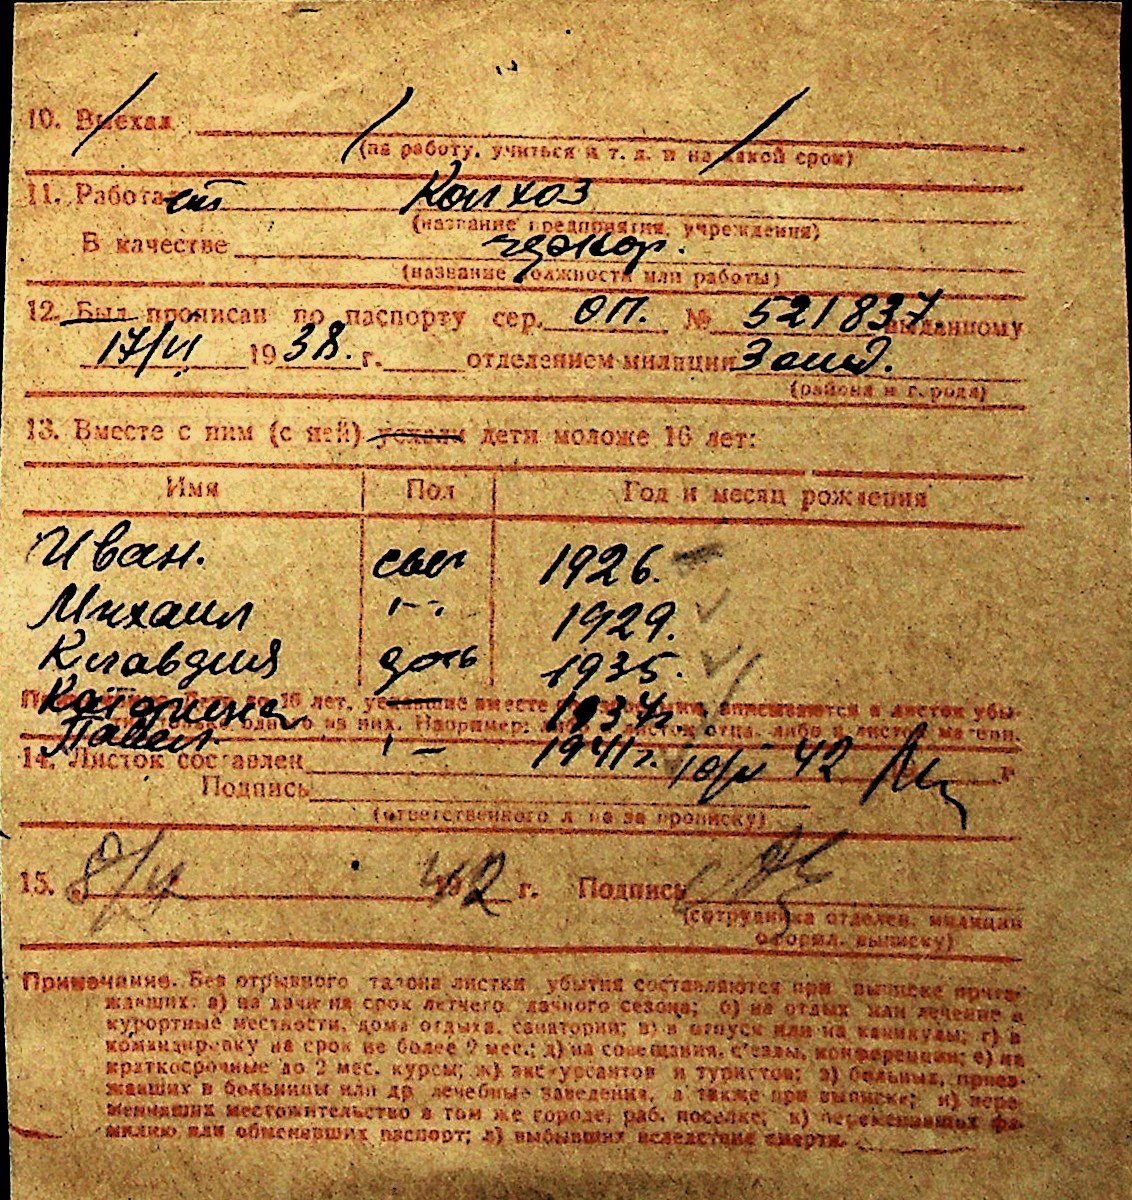 10. Выехал
(на работу, учиться и т. д. и на какой срок)
11. Работает Колхоз
(название предприятия, учреждения)
В качестве
(название должности или работы)
12. Был прописан по паспорту сер. ОП. № 521837 выданному
17/VI 1938. г. отделением милиции
(района и города)
13. Вместе с ним (с ней) уехали дети моложе 16 лет:
Имя Пол Год и месяц рождения
Иван. сын 1926.
Михаил -"- 1929.
Клавдия дочь 1935.
Катерина 1937г.
Павел. -"- 1941г.
14. Листок составлен 42 г.
Подпись
(ответственного лица за прописку)
15. 42 г. Подпись
(сотрудника отделен. милиции
оформл. выписку)
Примечание. Без отрывного талона листки убытия составляются при выписке приез-
жавших: а) на дачи на срок летнего дачного сезона; б) на отдых или лечение в
курортные местности, дома отдыха, санатории; в) в отпуск или на каникулы; г) в
командировку на срок не более 2 мес.; д) на совещания, с'езды, конференции; е) на
краткосрочные до 2 мес. курсы; ж) экскурсантов и туристов; з) больных, приез-
жавших в больницы или др. лечебные заведения, а также при выписке; и) пере-
менивших местожительство в том же городе, раб. поселке; к) переменивших фа-
милию или обменявших паспорт; л) выбывших вследствие смерти.